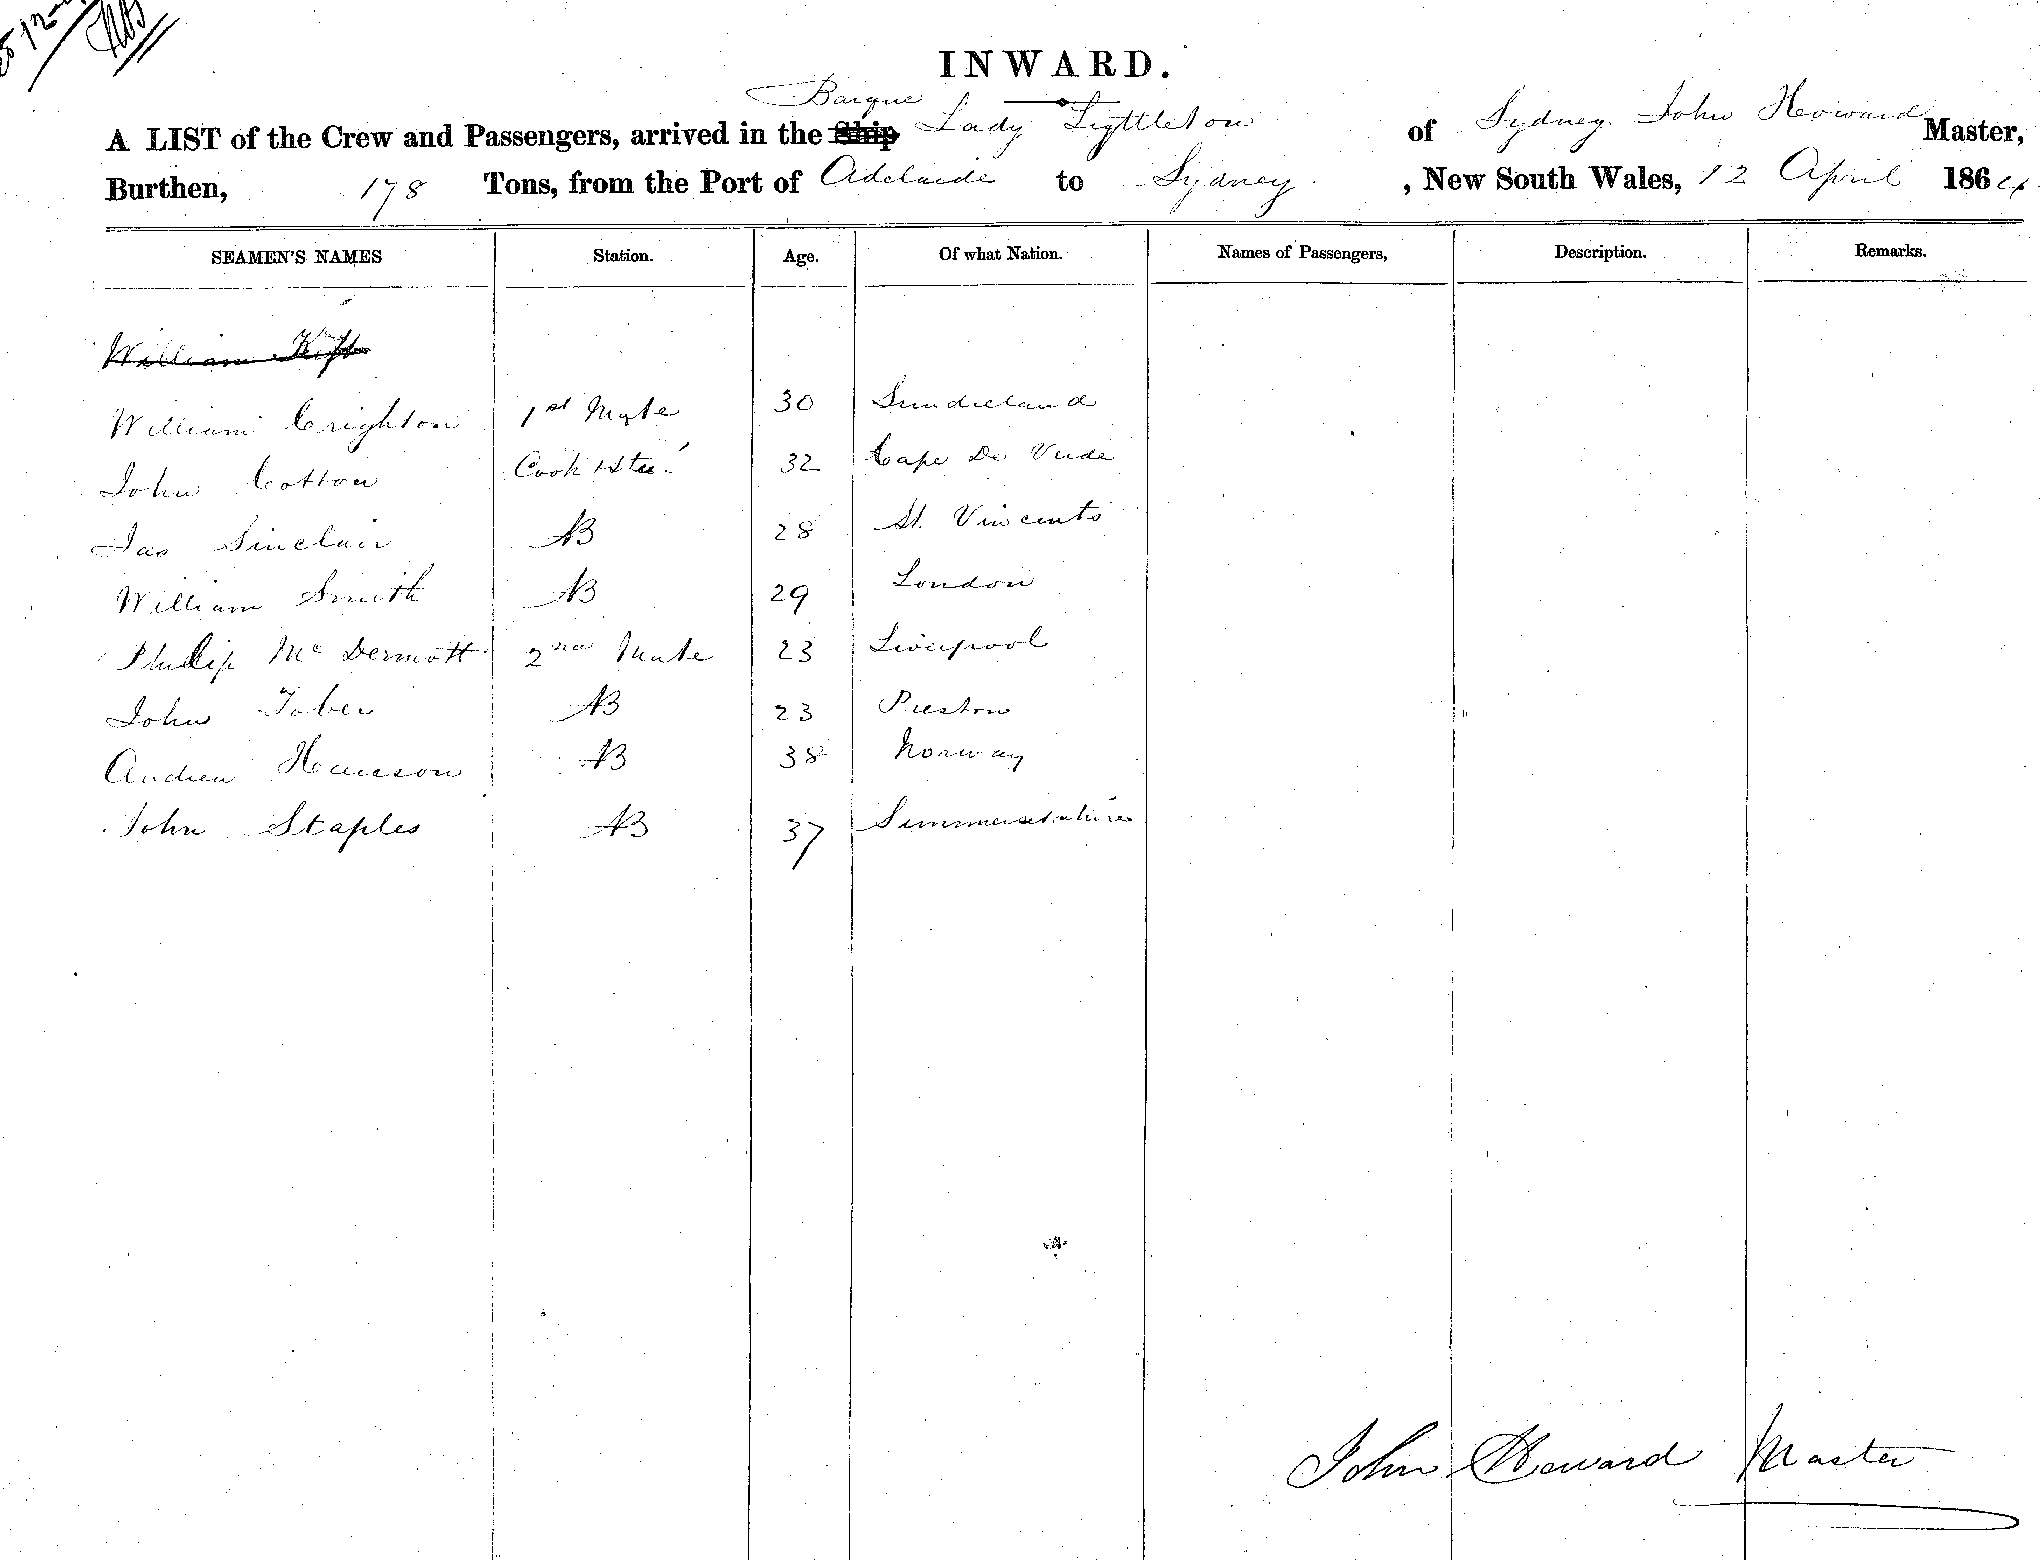 12
INWARD.
Barque
A LIST of the Crew and Passengers, arrived in the Ship Lady Lyttleton of Sydney John Howard Master,
Burthen, 178 Tons, from the Port of Adelaide to Sydney, New South Wales, 12 April 1864
SEAMEN'S NAMES Station. Age. Of what Nation. Names of Passengers, Description. Remarks.
William
William Crighton 1st Mate 30 Sunderland
John Cotton Cook & Ste. 32 Cape De Verde
Jas Sinclair AB 28 St. Vincents
William Smith AB 29 London
Philip Mc Dermott 2nd Mate 23 Liverpool
John Tober AB 23 Preston
Andrew Hansson AB 38 Norway
John Staples AB 37
John Howard Master